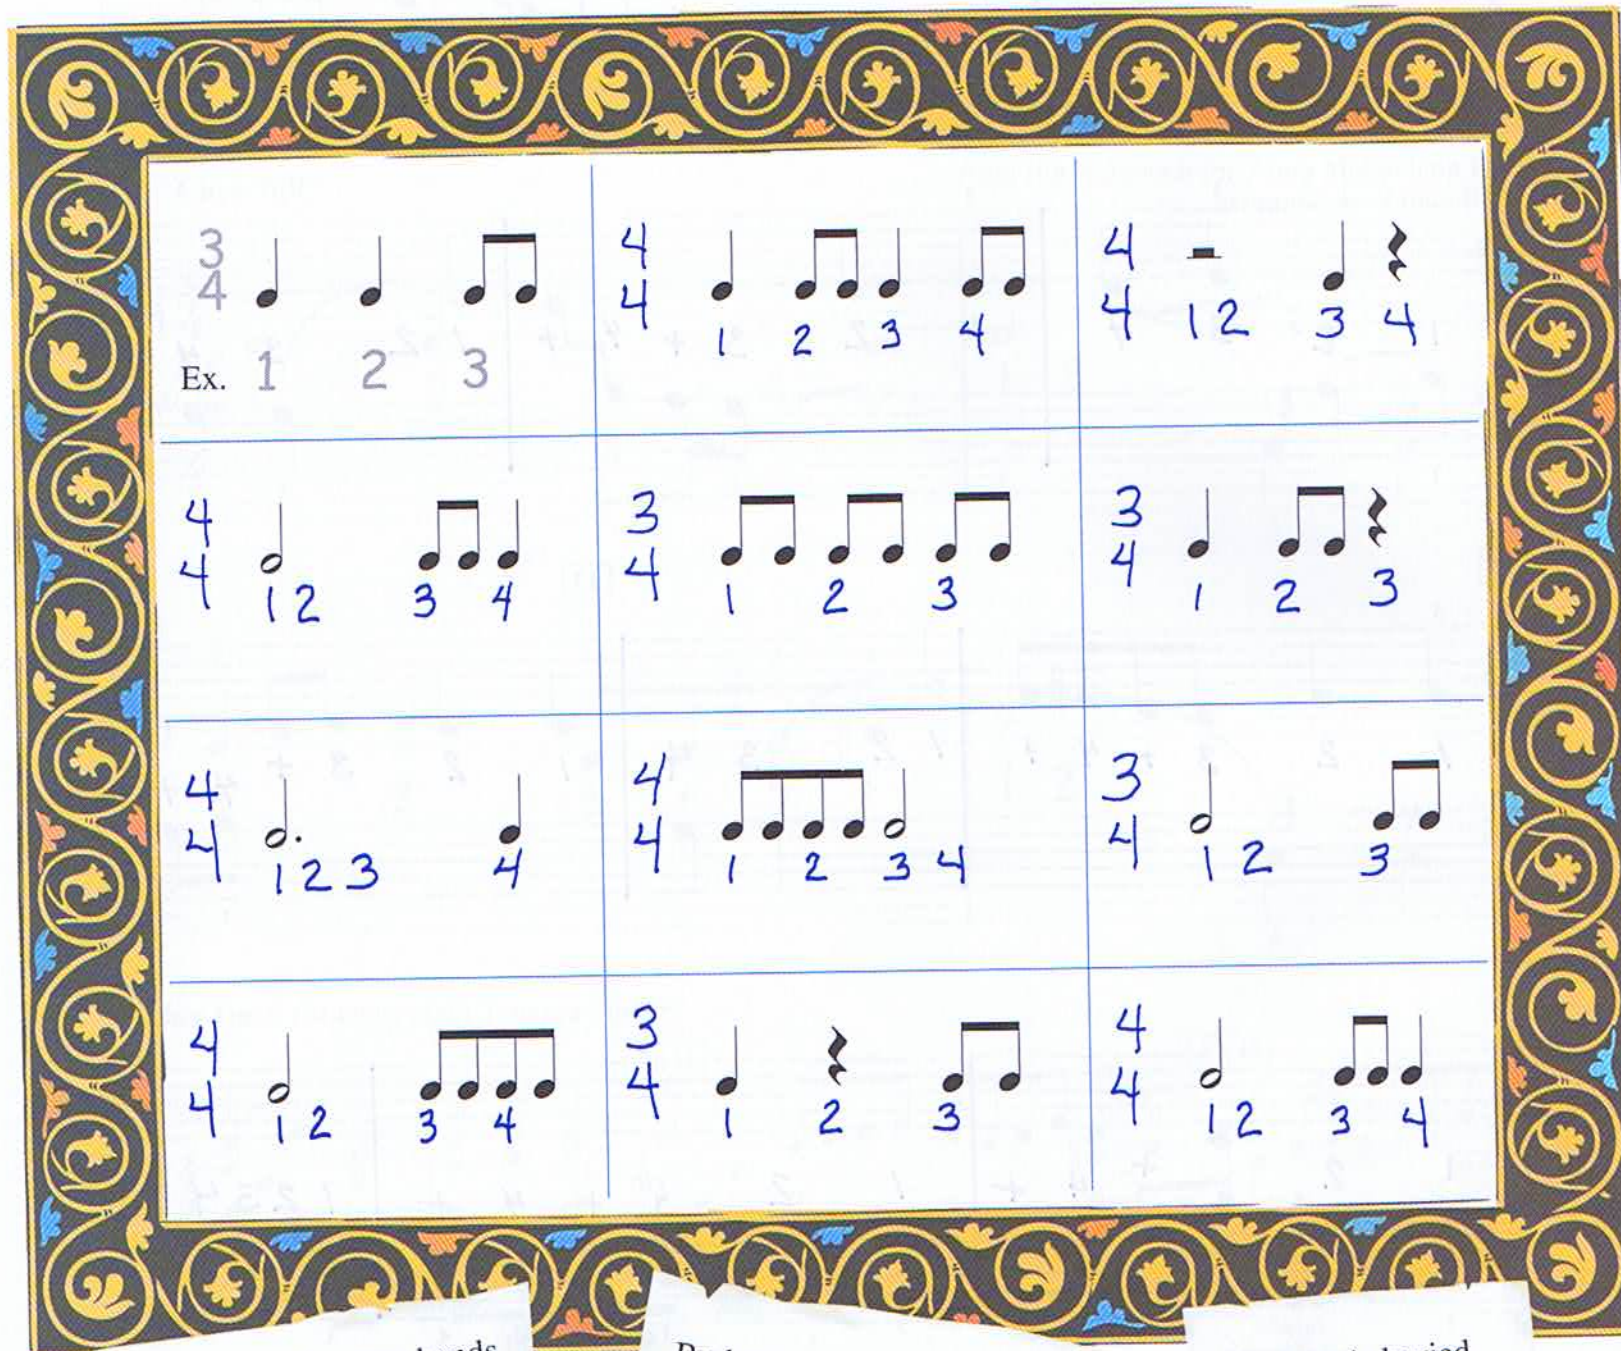 3
4
Ex. 1 2 3
4
4
1 2 3 4
4
4 1 2 3 4
4
4
1 2 3 4
3
4
1 2 3
3
4
1 2 3
4
4
1 2 3 4
4
4
1 2 3 4
3
4
1 2 3
4
4
1 2 3 4
3
4
1 2 3
4
4
1 2 3 4